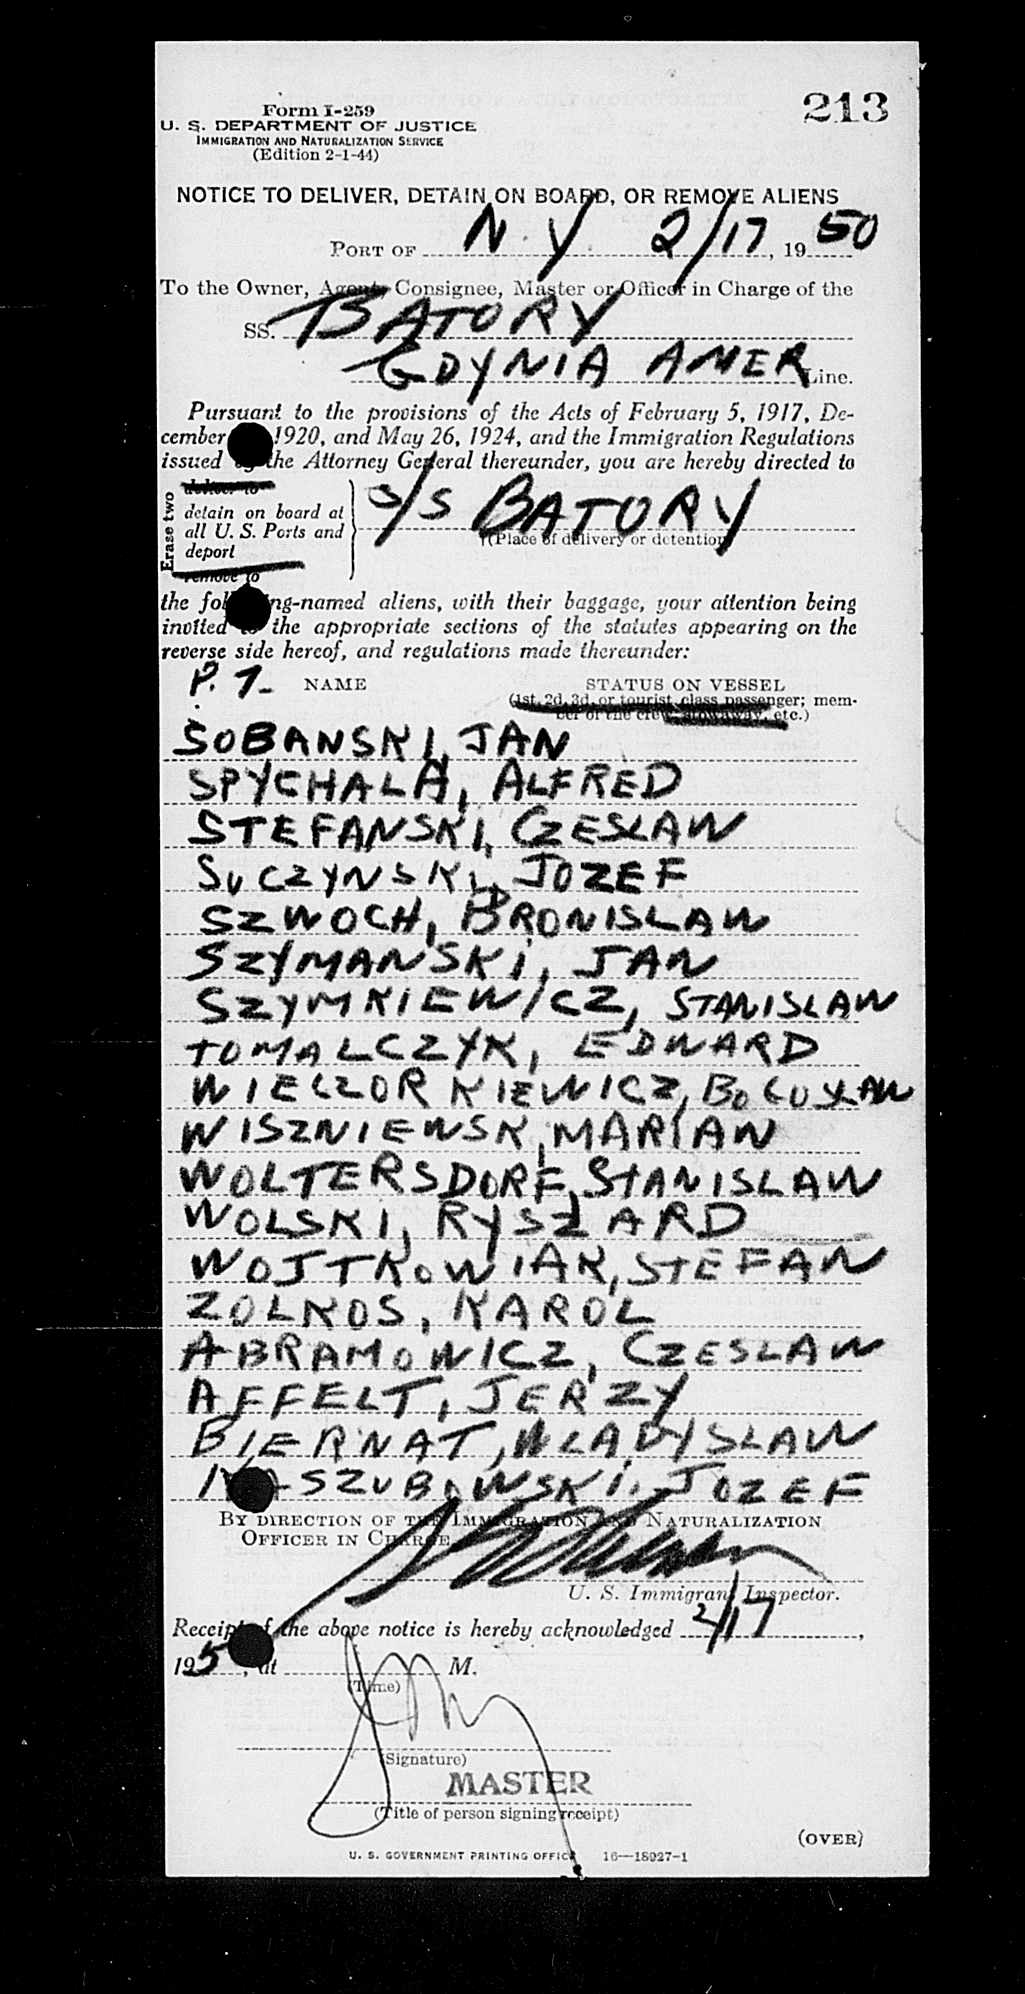 213
Form I-259
U. S. DEPARTMENT OF JUSTICE
IMMIGRATION AND NATURALIZATION SERVICE
(Edition 2-1-44)
NOTICE TO DELIVER, DETAIN ON BOARD, OR REMOVE ALIENS
PORT OF N.Y. 2/17, 1950
To the Owner, Agent, Consignee, Master or Officer in Charge of the
SS. BATORY
GDYNIA AMER Line.
Pursuant to the provisions of the Acts of February 5, 1917, De-
cember 1920, and May 26, 1924, and the Immigration Regulations
issued by the Attorney General thereunder, you are hereby directed to
Erase two
deliver to
detain on board at
all U. S. Ports and
deport
remove to
S/S BATORY
(Place of delivery or detention)
the following-named aliens, with their baggage, your attention being
invited to the appropriate sections of the statutes appearing on the
reverse side hereof, and regulations made thereunder:
P. 7. NAME STATUS ON VESSEL
(1st, 2d, 3d, or tourist class passenger; mem-
ber of the crew, stowaway, etc.)
SOBANSKI, JAN
SPYCHALA, ALFRED
STEFANSKI, CZESLAW
SUCZYNSKI, JOZEF
SZWOCH, BRONISLAW
SZYMANSKI, JAN
SZYMKIEWICZ, STANISLAW
TOMALCZYK, EDWARD
WIECZORKIEWICZ,
WISZNIEWSK, MARIAN
WOLTERSDORF, STANISLAW
WOLSKI, RYSZARD
WOJTKOWIAK, STEFAN
ZOLKOS, KAROL
ABRAMOWICZ, CZESLAW
AFFELT, JERZY
BIERNAT, WLADYSLAW
JOZEF
BY DIRECTION OF THE IMMIGRATION AND NATURALIZATION
OFFICER IN CHARGE
U. S. Immigrant Inspector.
Receipt of the above notice is hereby acknowledged 2/17,
195 , at M.
(Time)
(Signature)
MASTER
(Title of person signing receipt)
(OVER)
U. S. GOVERNMENT PRINTING OFFICE 16—18927-1